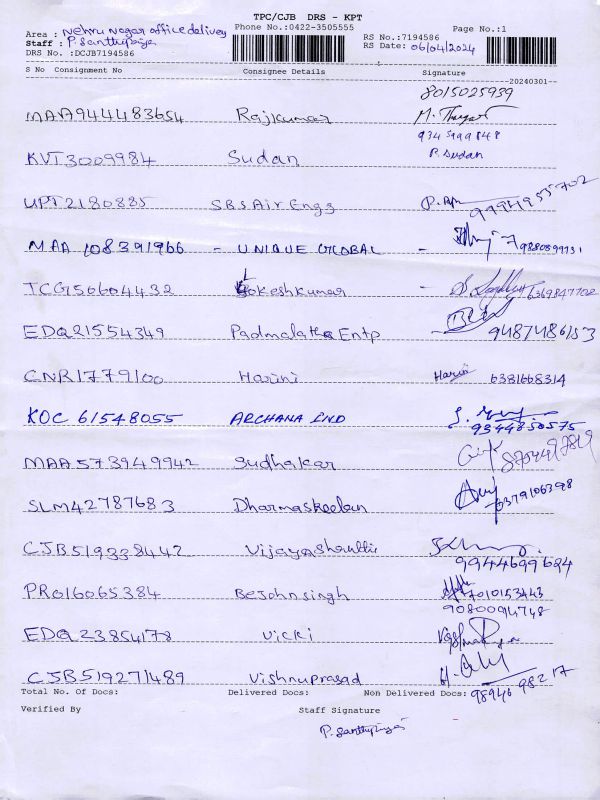 TPC/CJB DRS - KPT
Phone No.:0422-3505555 Page No.:1
Area : Nehru Nagar office delivery
Staff : P. Santhipriya
RS No.:7194586
RS Date: 06/04/2024
DRS No. :DCJB7194586
S No Consignment No Consignee Details Signature
20240301
8015025939
MAA944483654 Rajkumar
KVT3009984 Sudan P. Sudan
UPT2180885 SBS Air Engg 9994955702
MAA 108391966 - UNIQUE GLOBAL -
TCG50604432 Lokeshkumar - 6369847702
EDQ21554349 Padmalatha Entp - 9487486153
CNR1779100 Harini Harini 6381668314
KOC 61548055 ARCHANA IND 9344850575
MAA573949942 Sudhakar
SLM42787683 Dharmaskeelan
CJB519338442 Vijayashanthi 9944699624
PRO16065384 Bejohnsingh 7010153443
9080094748
EDQ23854178 Vicki
CJB519271489 Vishnuprasad 98946 98217
Total No. Of Docs: Delivered Docs: Non Delivered Docs:
Verified By Staff Signature
P. Santhipriya